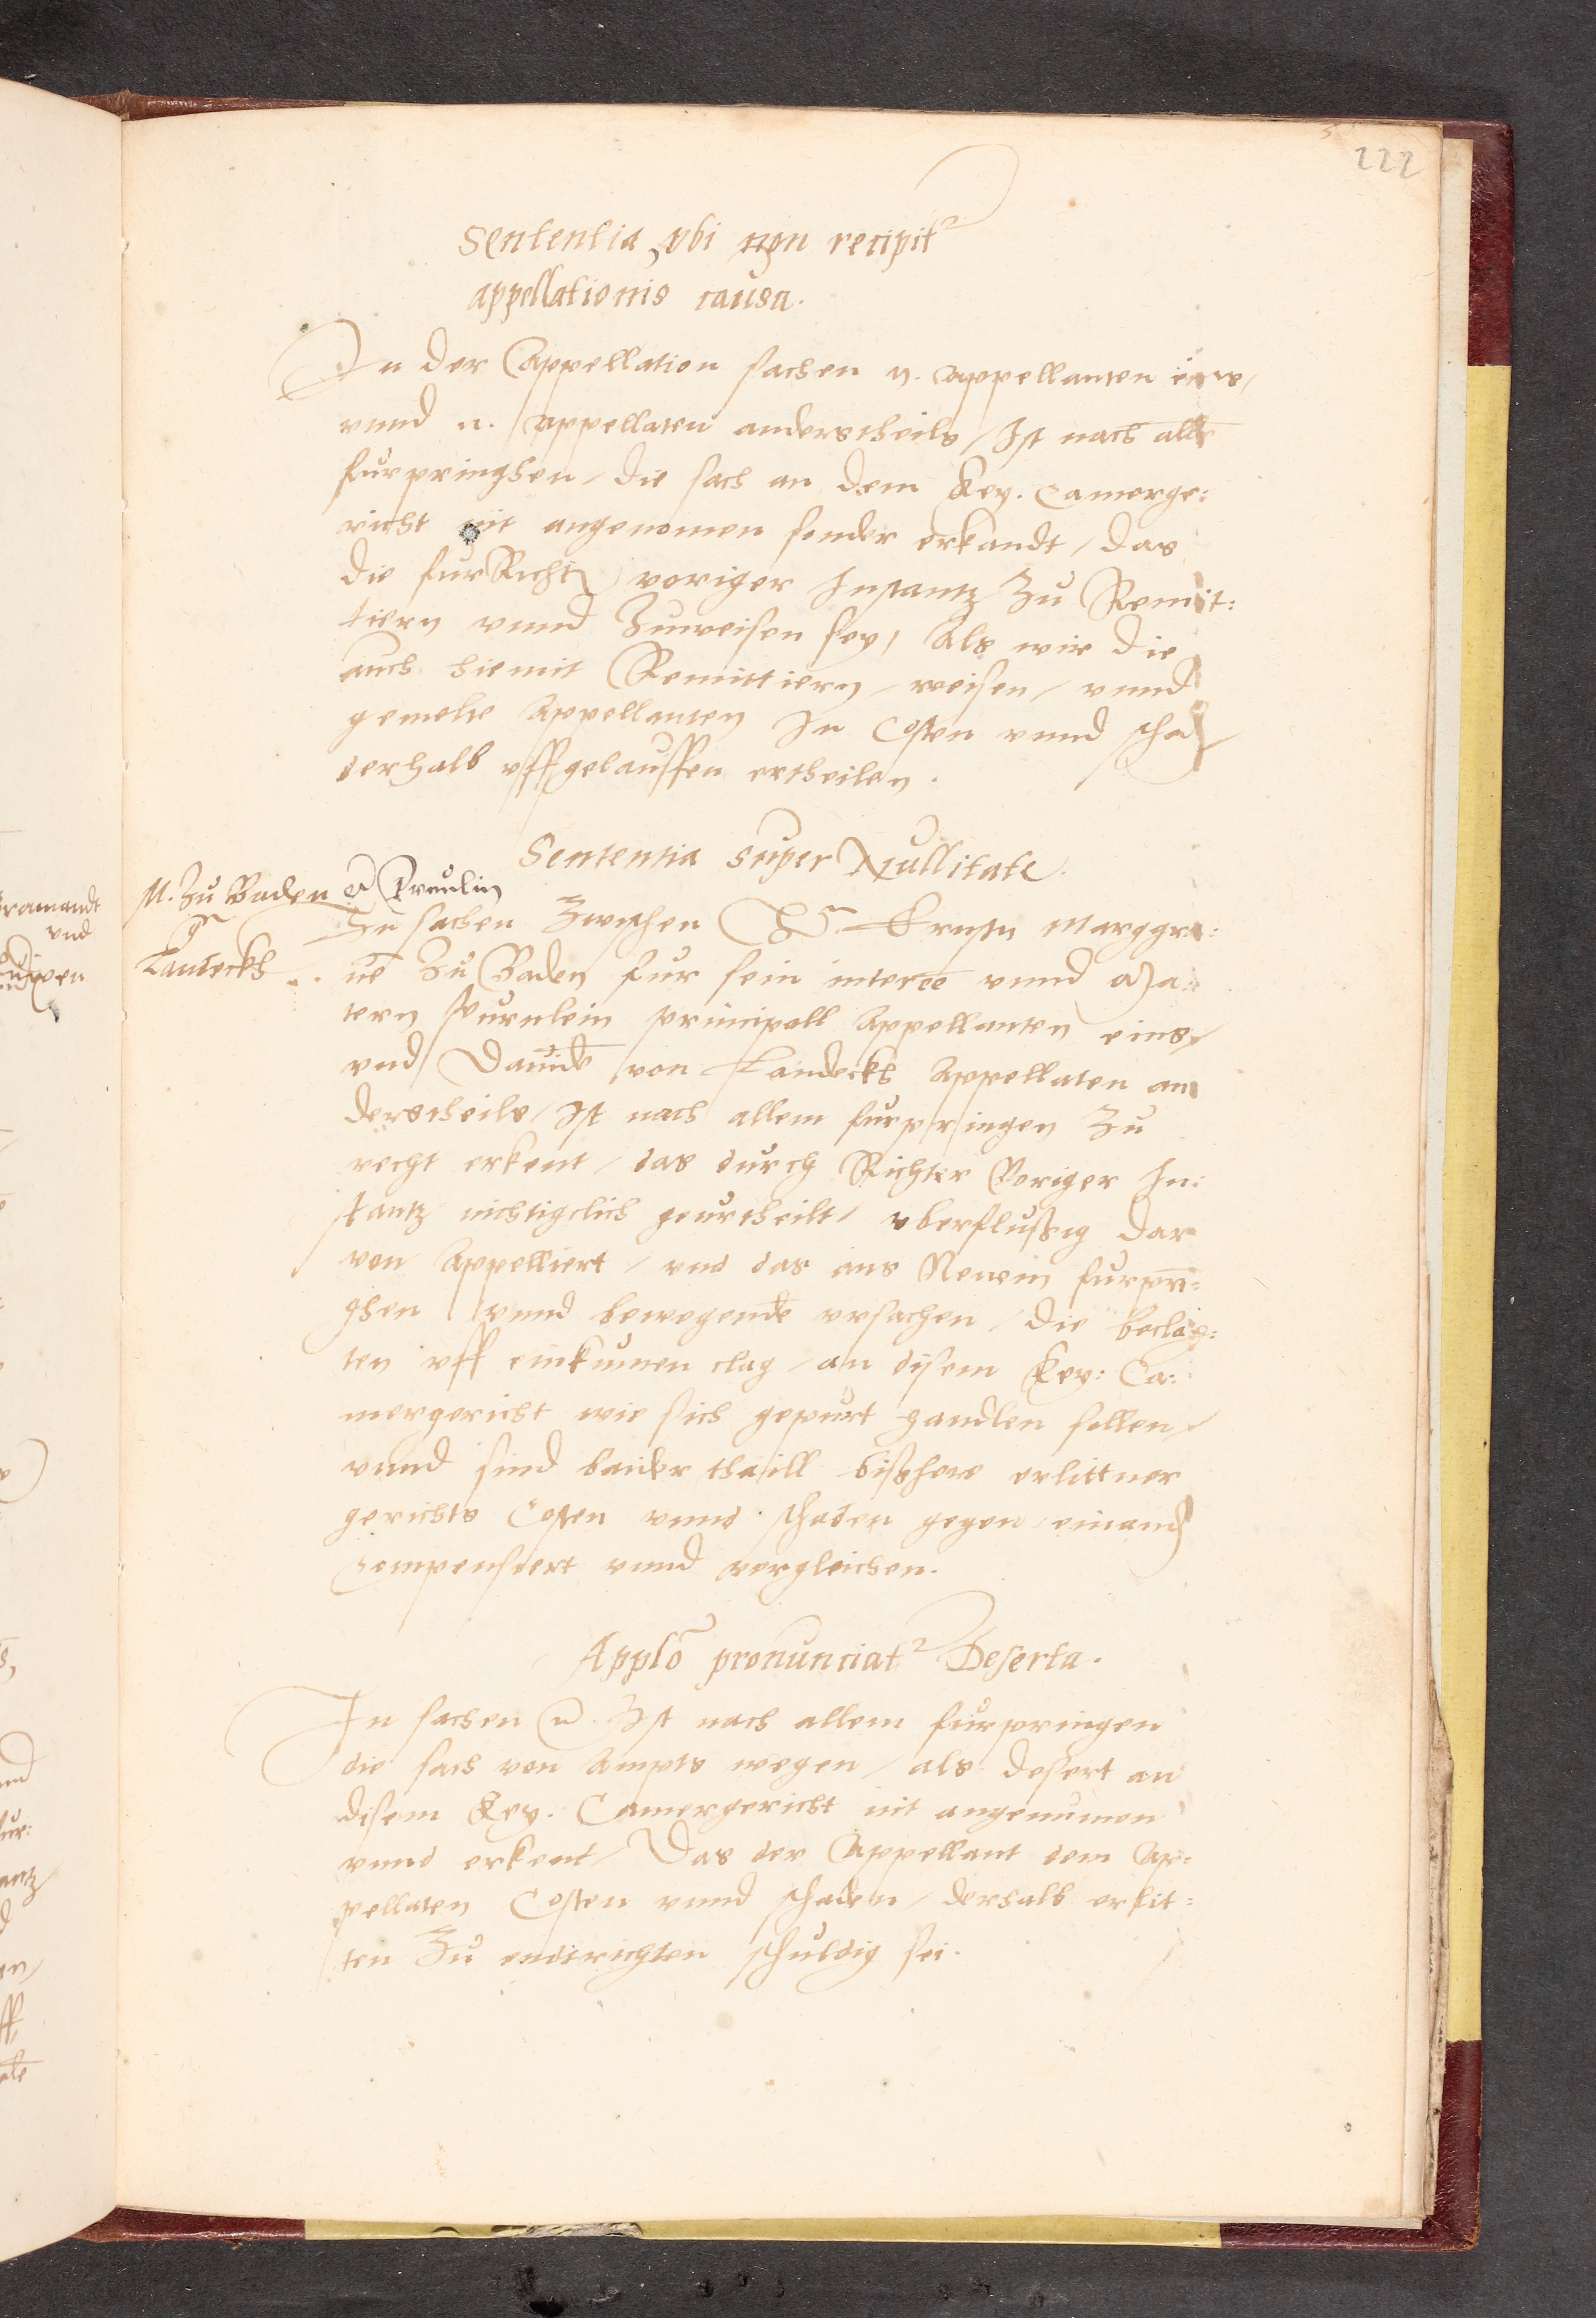 222
Sententia, vbi non recipit
appellationis causa.
In der Appellation sachen n. Appellanten eins,
vnnd n. Appellaten anderstheils, Ist nach alle
furpringhen, die sach an dem Key. Camerge:
richt nit angenomen sonder erkandt, das
die fur Richter voriger Instantz zu Remit:
tiern vnnd zuweisen sey, Als wir die
auch hiemit Remittiern, weisen, vnnd
gemelte Appellanten In Costen vnnd scha
derhalb vffgelauffen ertheilen.
Sententia super Nullitate.
M. zu Baden et Freulin
Landeckh
In sachen zwischen Ernstn Marggra:
ue zu Baden fur sein interee vnnd
tern principall Appellanten eins,
vnd Dauide von Landeckh Appellaten an
derstheils, Ist nach allem furpringen zu
recht erkent, das durch Richter Voriger In:
stantz nichtigclich geurtheilt, vberflußig dar
von Appelliert, vnd das aus Newem furpri:
ghen vnnd bewegende vrsachen, die beclag:
ten vff einkumen clag, an disem Key: Ca:
mergericht wie sich gepurt handlen sollen,
vnnd sind baider thaill bißhere erlittner
gerichts Costen vnnd schaden gegen einand
compensiert vnnd vergleichen.
Applo pronunciat Deserta.
In sachen n. Ist nach allem furpringen
die sach von Ampts wegen, als desert an
disem Key. Camergericht nit angenumen
vnnd erkent, Das der Appellant dem Ap:
pellaten Costen vnnd schaden, derhalb erlit:
ten zu endtrichten schuldig sei.